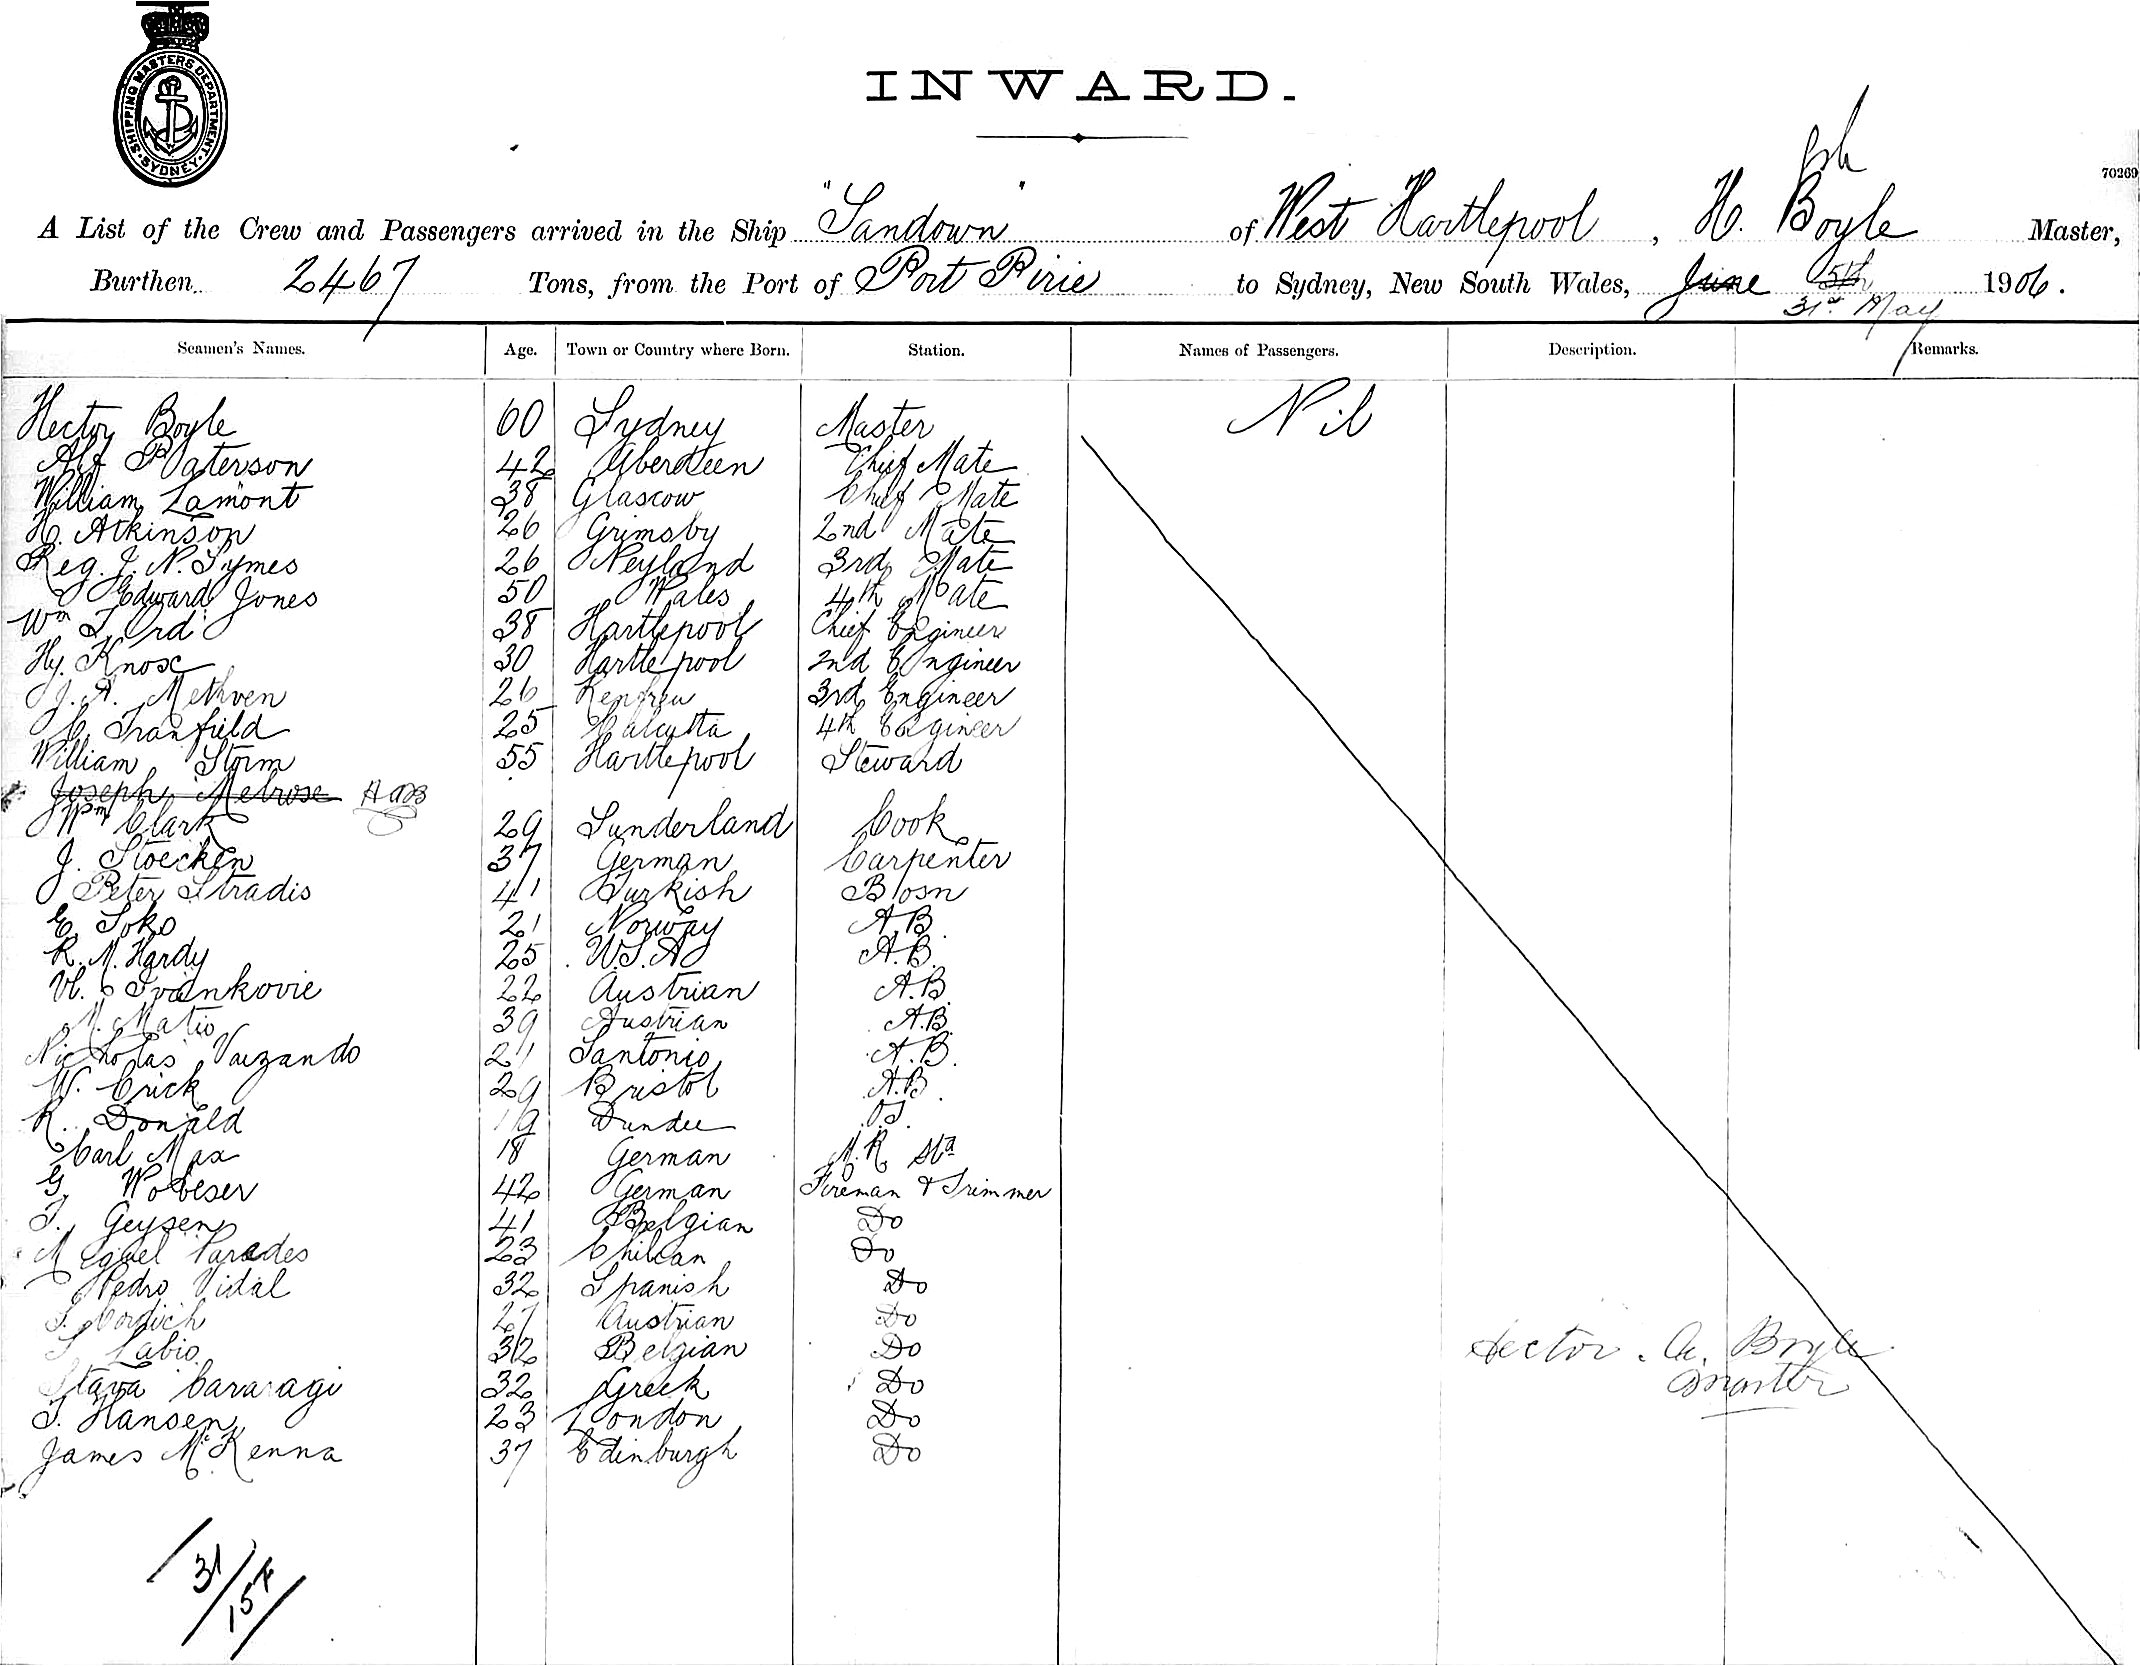 SHIPPING MASTERS DEPARTMENT
SYDNEY
INWARD.
70269
A List of the Crew and Passengers arrived in the Ship "Sandown" of West Hartlepool, H. Boyle Master,
Burthen 2467 Tons, from the Port of Port Pirie to Sydney, New South Wales, June 5th 1906.
31st May
Seamen's Names. Age. Town or Country where Born. Station. Names of Passengers. Description. Remarks.
Hector Boyle 60 Sydney Master Nil
Alf Paterson 42 Aberdeen Chief Mate
William Lamont 38 Glascow Chief Mate
H. Atkinson 26 Grimsby 2nd Mate
Reg. J. N. Symes 26 Neyland 3rd Mate
Edward Jones 50 Wales 4th Mate
Wm T. Ord 38 Hartlepool Chief Engineer
Hy. Knox 30 Hartlepool 2nd Engineer
J. A. Methven 26 Renfrew 3rd Engineer
C. Tranfield 25 Calcutta 4th Engineer
William Storm 55 Hartlepool Steward
Joseph Melrose
Wm Clark 29 Sunderland Cook
J. Stoecken 37 German Carpenter
Peter Stradis 41 Turkish Bosn
E. Toko 21 Norway A.B.
R. M. Hardy 25 U.S.A A.B.
Vl. Ivankovie 22 Austrian A.B.
M. Matio 39 Austrian A.B.
Nicholas Vazando 21 Santonio A.B.
W. Crick 29 Bristol A.B.
R. Donald 19 Dundee O.S.
Carl Max 18 German M. R. Std
G. Wobeser 42 German Fireman & Trimmer
T. Geysen 41 Belgian Do
Meguel Parades 23 Chilean Do
Pedro Vidal 32 Spanish Do
27 Austrian Do
Labio 32 Belgian Do
Stava 32 Greek Do
T. Hansen 23 London Do
James McKenna 37 Edinburgh Do
Hector. A. Boyle
Master
31/154